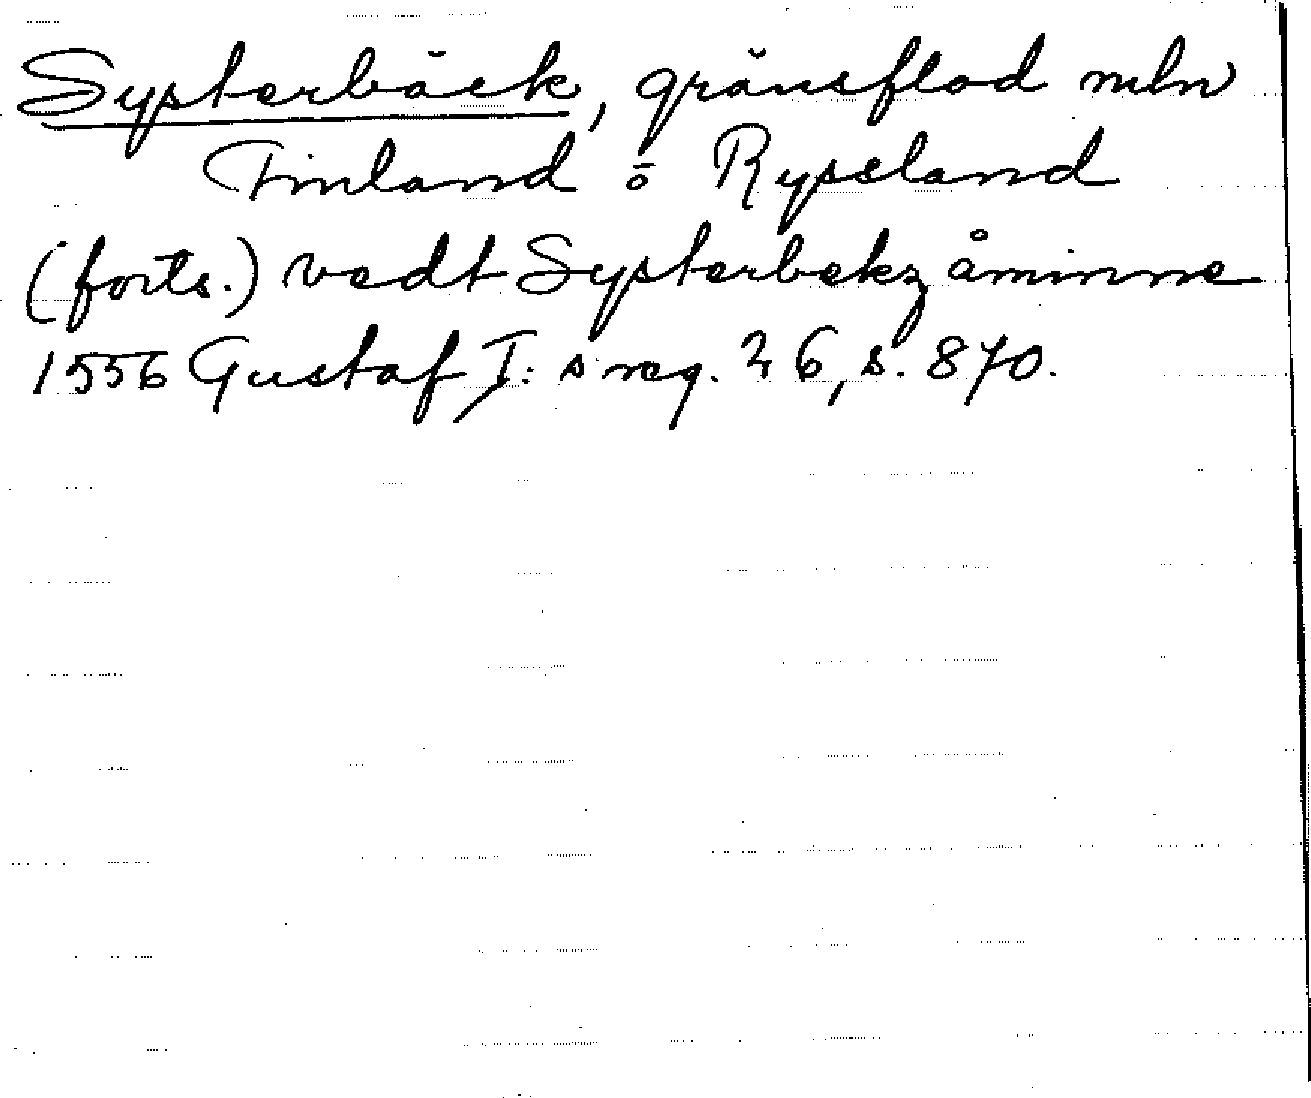 Systerbäck, gränsflod mln
Finland ō Ryssland
(forts.) vedt Systerbekz åminne
1556 Gustaf I:s reg. 26, s. 870.